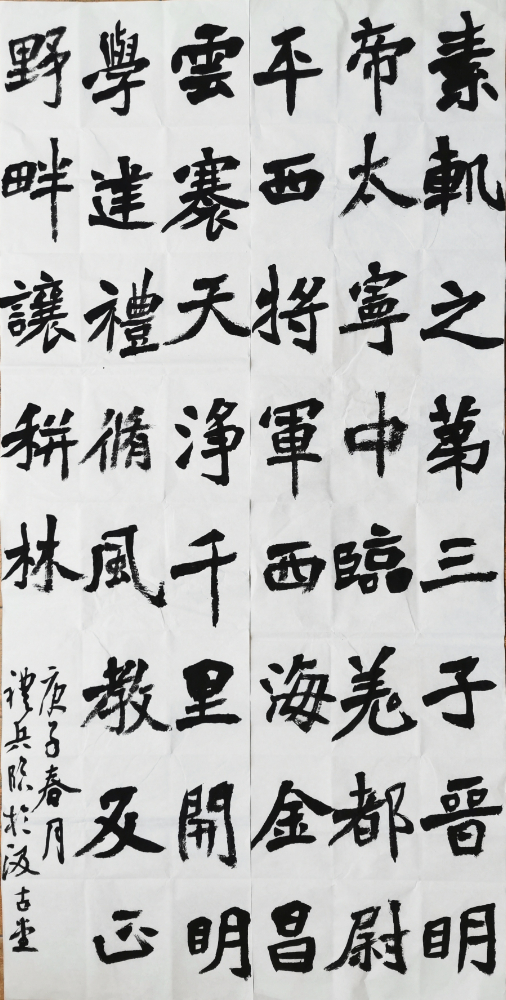 素軌之第三子晉明
帝太寧中臨羌都尉
平西將軍西海金昌
雲褰天淨千里開明
學建禮脩風教反正
野畔讓耕林
庚子春月
禮兵臨於汲古堂